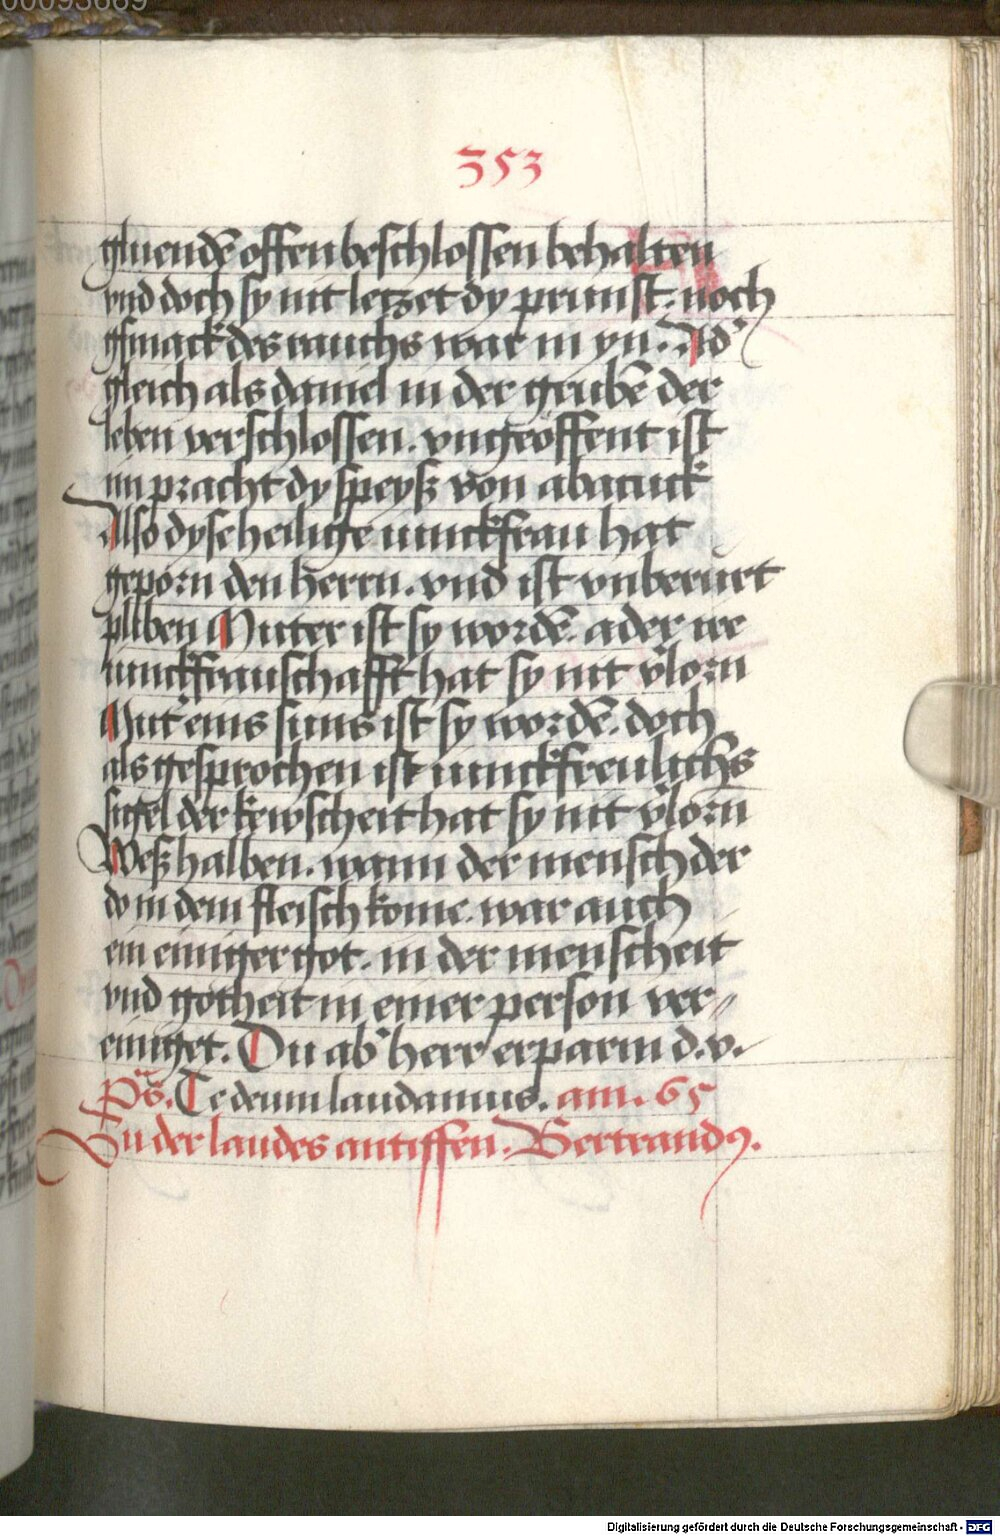 00093669
353
gluendē offen beschlossen behalten
vnd doch sy nit letzet dy prunst. noch
gsmack des rauchs war in yn. Ad'
gleich als daniel in der grubē der
leben verschlossen. vngeöffent ist
im pracht dy speysz von abacuck
Also dyse heilige iunckfrau hat
geporn den herrn. vnd ist vnberurt
pliben Muter ist sy wordē. ader ire
iunckfrauschafft hat sy nit v̄lorn
Mut' eins suns ist sy wordē. doch
als gesprochen ist iunckfreulichs
sigel der kewscheit hat sy nit v̄lorn
Weszhalben. wann der mensch der
do in dem fleisch kome. war auch
ein einiger got. in der menscheit
vnd gotheit in einer person ver//
einiget. Du ab' herr erparm d. v.
Ps. Te deum laudamus. am. 65
Zu der laudes antiffen. Bertrandꝰ.
Digitalisierung gefördert durch die Deutsche Forschungsgemeinschaft - DFG